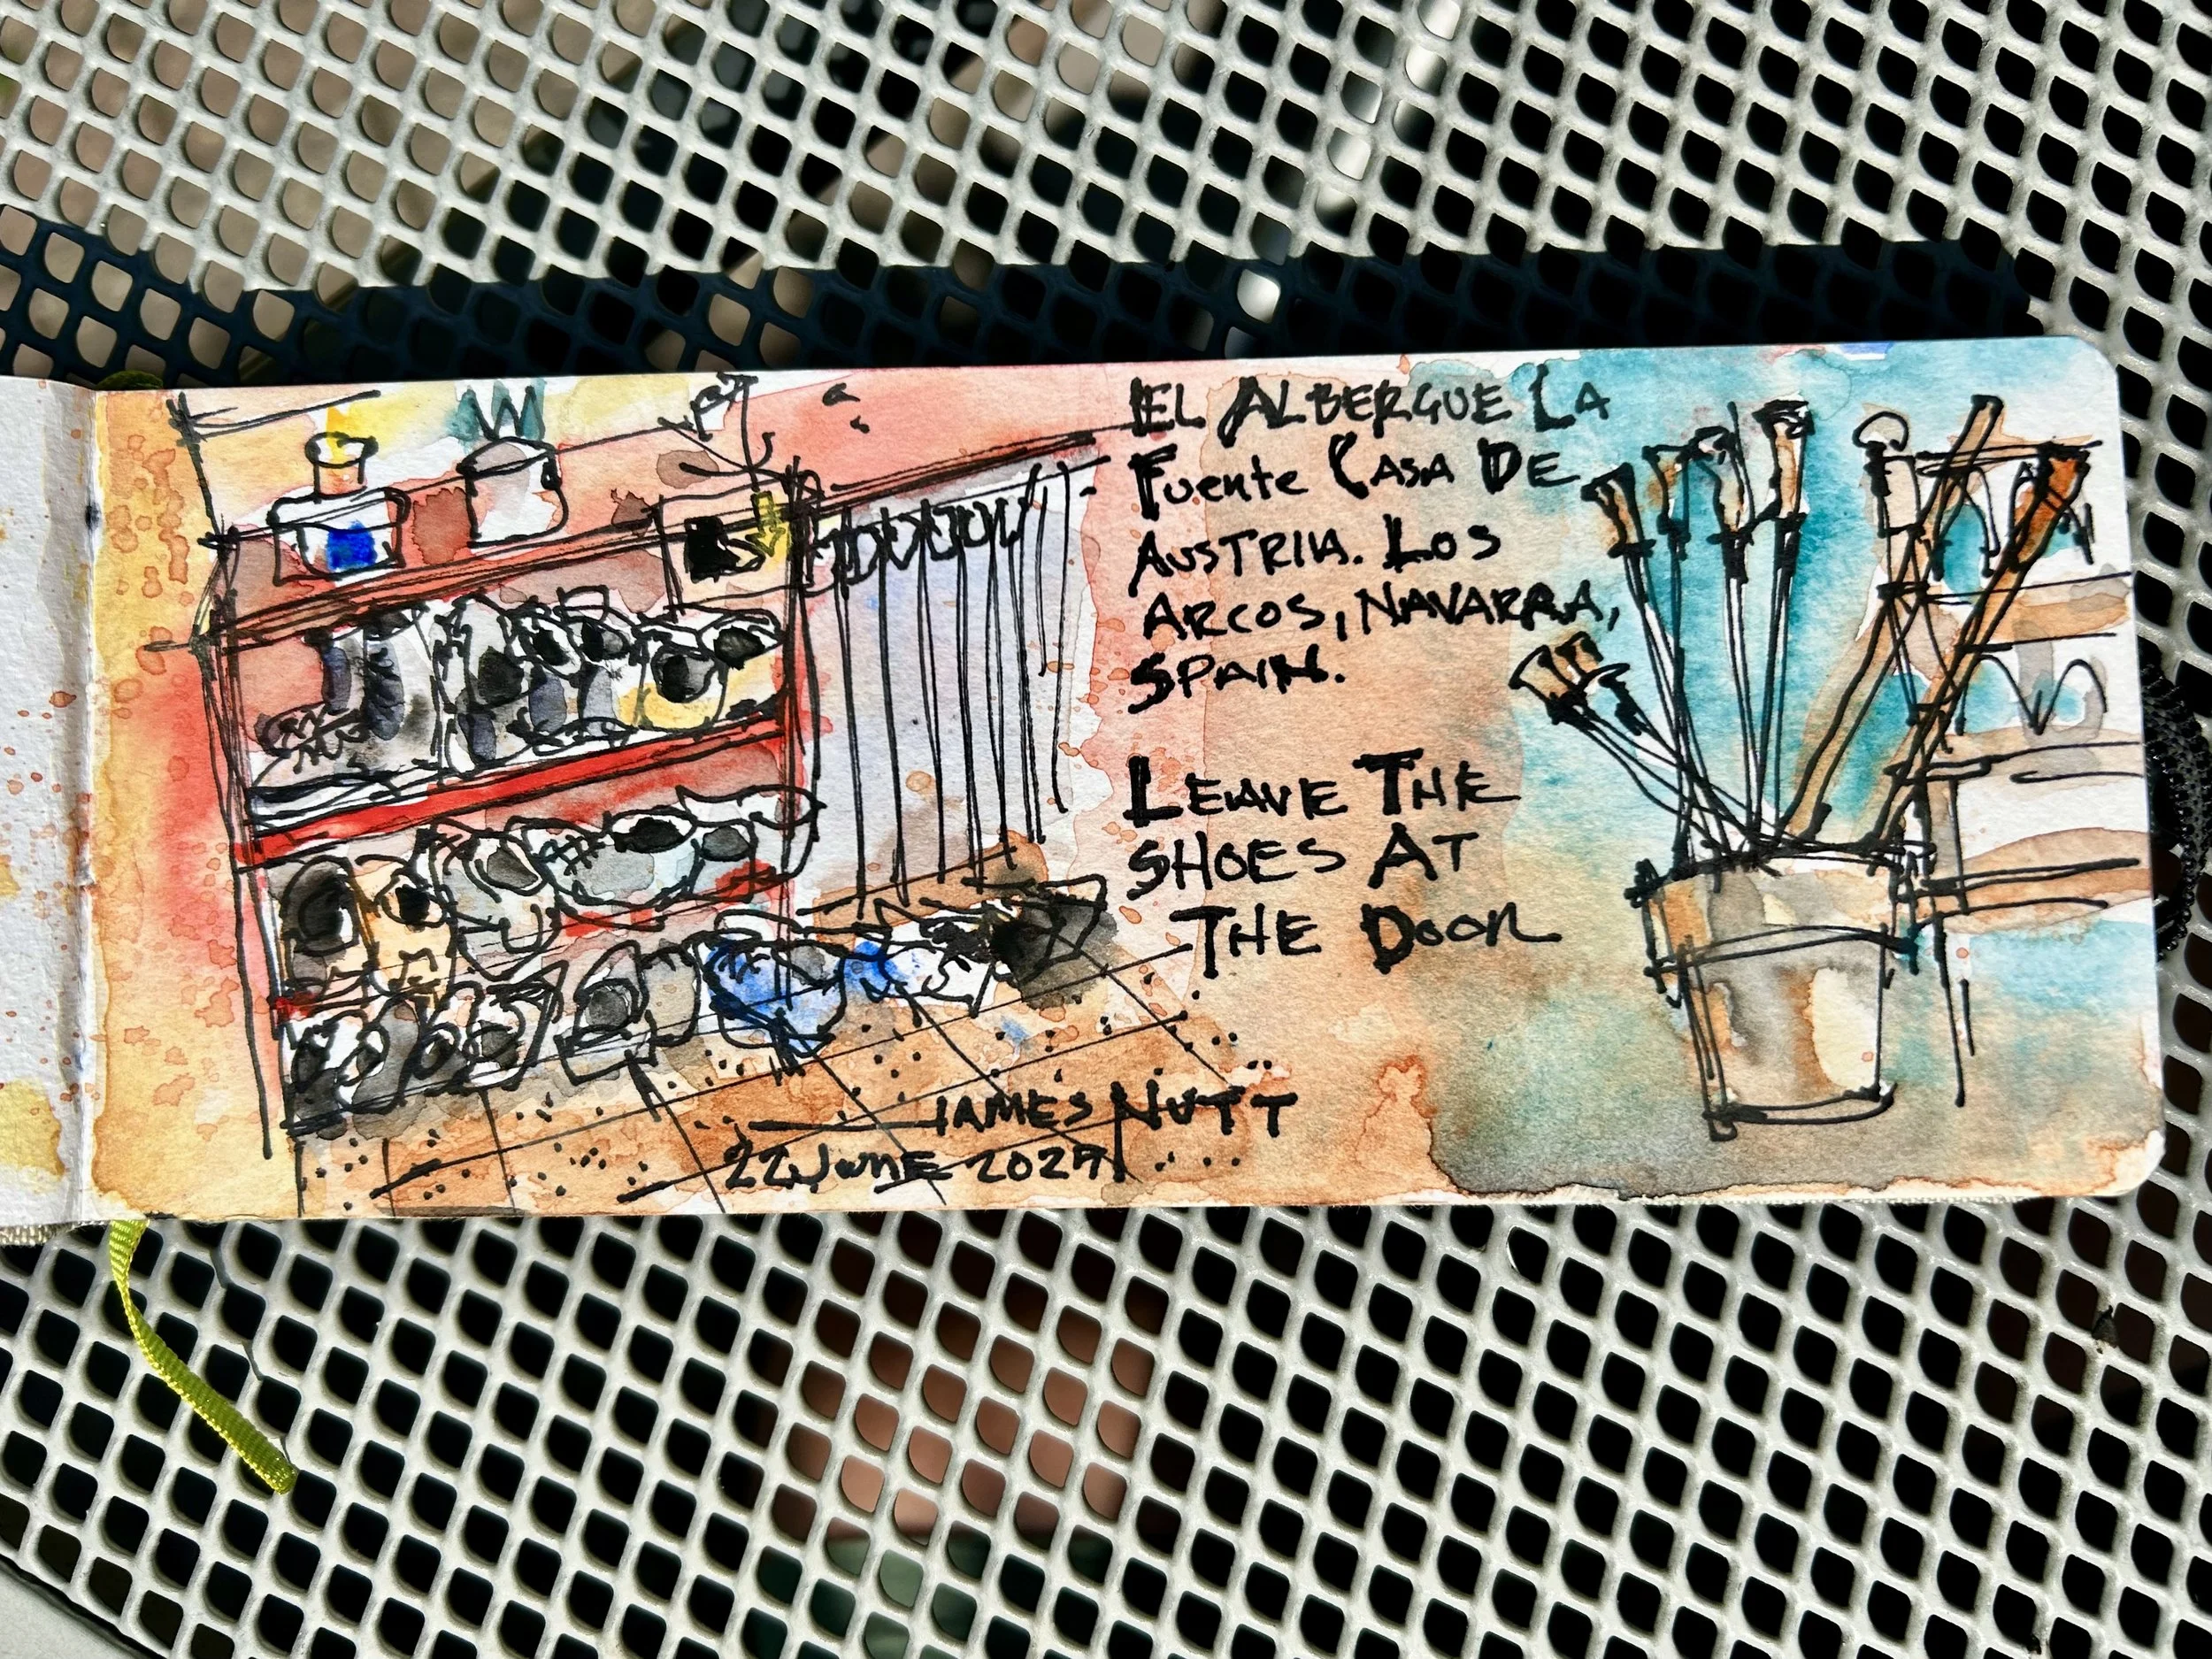 EL ALBERGUE LA
Fuente CASA DE
AUSTRIA. LOS
ARCOS, NAVARRA,
SPAIN.
LEAVE THE
SHOES AT
THE DOOR
JAMES NUTT
22 JUNE